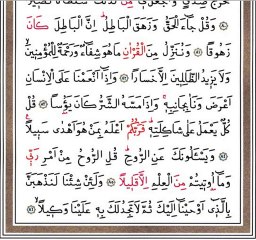 ﴿٨٠﴾ وَقُلْ جَاءَ الْحَقُّ وَزَهَقَ الْبَاطِلُ اِنَّ الْبَاطِلَ كَانَ
زَهُوقًا ﴿٨١﴾ وَنُنَزِّلُ مِنَ الْقُرْاٰنِ مَا هُوَ شِفَاءٌ وَرَحْمَةٌ لِلْمُؤْمِنِينَ
وَلَا يَزِيدُ الظَّالِمِينَ اِلَّا خَسَارًا ﴿٨٢﴾ وَاِذَا اَنْعَمْنَا عَلَى الْاِنْسَانِ
اَعْرَضَ وَنَاٰ بِجَانِبِهِ وَاِذَا مَسَّهُ الشَّرُّ كَانَ يَؤُسًا ﴿٨٣﴾ قُلْ
كُلٌّ يَعْمَلُ عَلٰى شَاكِلَتِهِ فَرَبُّكُمْ اَعْلَمُ بِمَنْ هُوَ اَهْدٰى سَبِيلًا
﴿٨٤﴾ وَيَسْـَٔلُونَكَ عَنِ الرُّوحِ قُلِ الرُّوحُ مِنْ اَمْرِ رَبِّي
وَمَا اُو۫تِيتُمْ مِنَ الْعِلْمِ اِلَّا قَلِيلًا ﴿٨٥﴾ وَلَئِنْ شِئْنَا لَنَذْهَبَنَّ
بِالَّذِي اَوْحَيْنَا اِلَيْكَ ثُمَّ لَا تَجِدُ لَكَ بِهِ عَلَيْنَا وَكِيلًا ﴿٨٦﴾